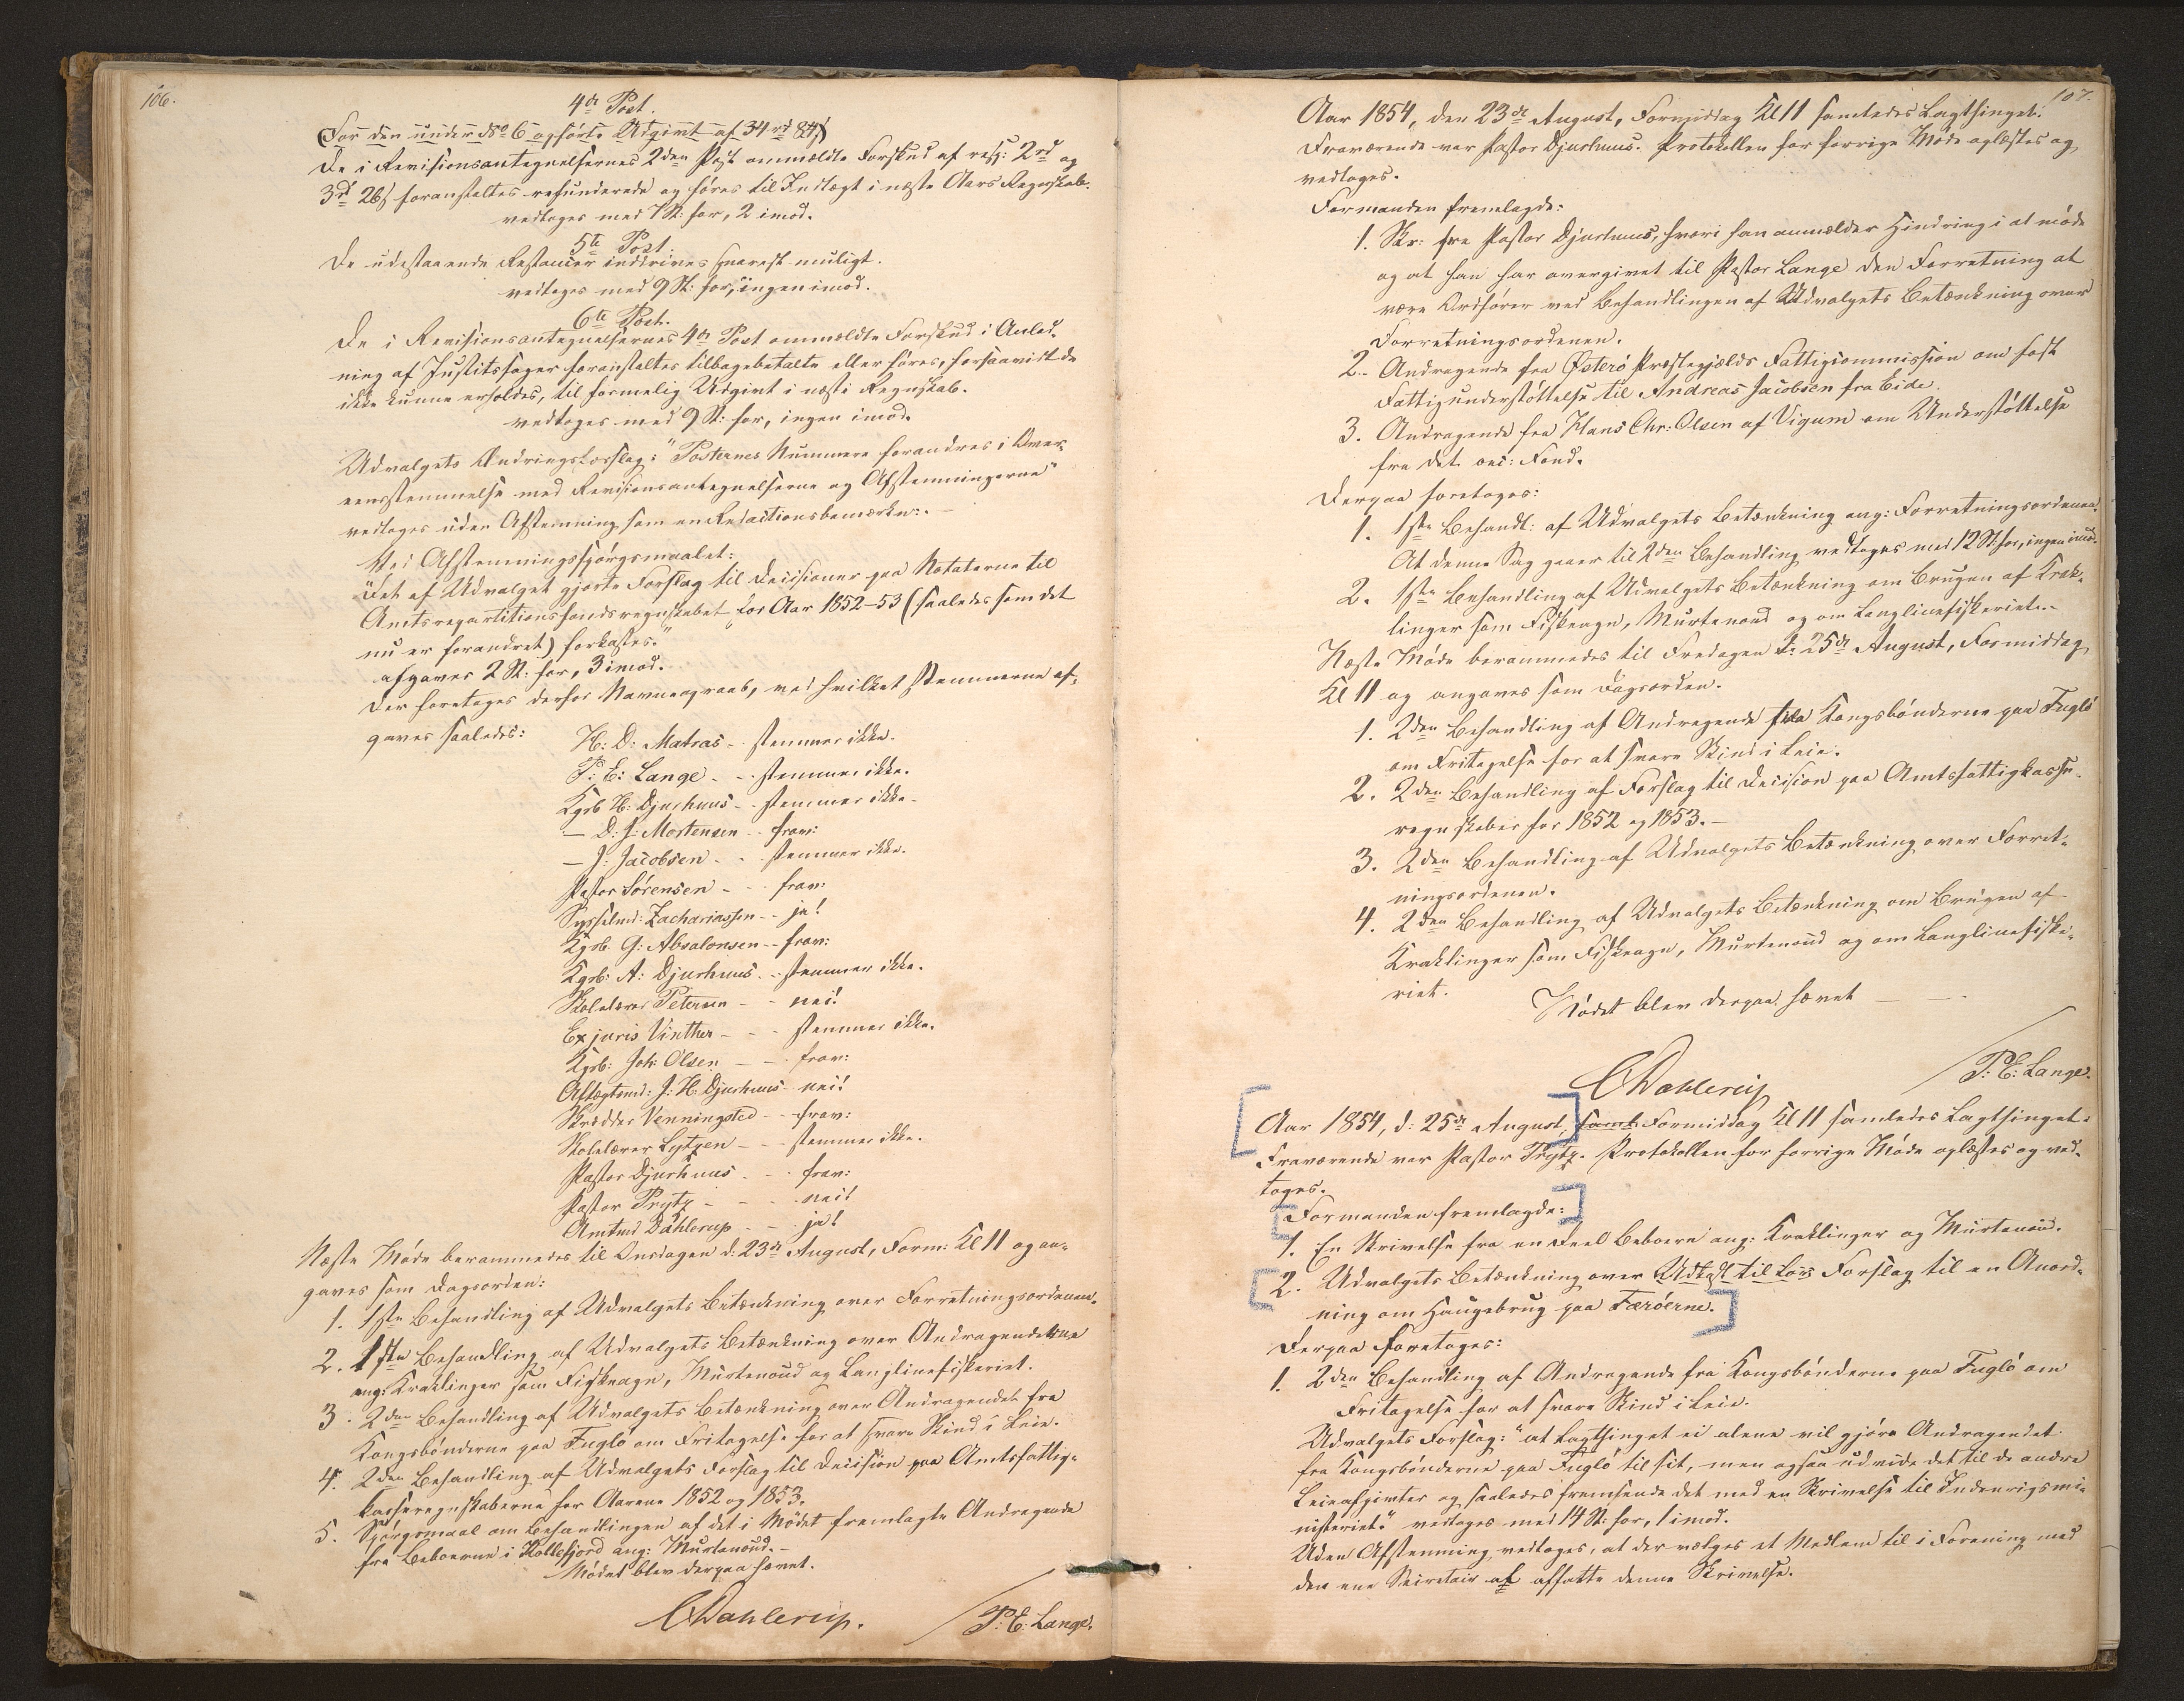 106.
4de Post.
(For den under No 6 opførte Udgivt af 34 rd 84 s)
De i Revisionsantegnelsernes 2den Post ommeldte Forskud af resp: 2rd og
3rd 26 s foranstaltes refunderede og føres til Indtægt i næste Aars Regnskab.
vedtoges med 7 St: for, 2 imod.
5te Post.
De udestaaende Restancer inddrives snarest muligt.
vedtoges med 9 St: for, ingen imod.
6te Post.
De i Revisionsantegnelsernes 4de Post ommeldte Forskud i Anled-
ning af Justitssager foranstaltes tilbagebetalte eller føres, forsaavidt de
ikke kunne erholdes, til formelig Udgivt i næste Regnskab.
vedtoges med 9 St: for, ingen imod.
Udvalgets Ændringsforslag: "Posternes Nummere forandres i Over-
eensstemmelse med Revisionsantegnelserne og Afstemningerne"
vedtoges uden Afstemning som en Redactionsbemærkn:. —
Ved Afstemningsspørgsmaalet:
"Det af Udvalget gjorte Forslag til Decisioner paa Notaterne til
Amtsrepartitionsfondsregnskabet for Aar 1852-53 (saaledes som det
nu er forandret) forkastes."
afgaves 2 St: for, 3 imod.
Der foretoges derfor Navneopraab, ved hvilket Stemmerne af-
gaves saaledes:
H: D: Matras - stemmer ikke.
P: E: Lange - - stemmer ikke.
Kgsb H: Djurhuus - - stemmer ikke.
— D: J: Mortensen - - frav:
— J: Jacobsen - - stemmer ikke.
Pastor Sørensen - - - frav:
Sysselmd: Zachariassen - - ja!
Kgsb. G: Absalonsen - - frav:
Kgsb: A: Djurhuus - - stemmer ikke.
Skolelærer Petersen - - nei!
Exjuris Vinther - - - stemmer ikke.
Kgsb: Joh: Olsen - - - frav:
Aftægtsmd: J: H: Djurhuus - nei!
Skrædder Venningsted - - frav:
Skolelærer Lytzen - - - stemmer ikke.
Pastor Djurhuus - - - frav:
Pastor Prytz - - - - nei!
Amtmd Dahlerup - - - ja!
Næste Møde berammedes til Onsdagen d: 23de August, Form: Kl 11 og an-
gaves som Dagsorden:
1. 1ste Behandling af Udvalgets Betænkning over Forretningsordenen.
2. 1ste Behandling af Udvalgets Betænkning over Andragenderne
ang: Kraklinger som Fiskeagn, Murtenoud og Langlinefiskeriet.
3. 2den Behandling af Udvalgets Betænkning over Andragendet fra
Kongsbønderne paa Fuglø om Fritagelse for at svare Skind i Leie.
4. 2den Behandling af Udvalgets Forslag til Decision paa Amtsfattig-
kasseregnskaberne for Aarene 1852 og 1853.
5. Spørgsmaal om Behandlingen af det i Mødet fremlagte Andragende
fra Beboerne i Kollefjord ang: Murtenoud. —
Mødet blev derpaa hævet.
CDahlerup. P: E: Lange.
107.
Aar 1854, den 23de August, Formiddag Kl 11 samledes Lagthinget.
Fraværende var Pastor Djurhuus. Protokollen for forrige Møde oplæstes og
vedtoges.
Formanden fremlagde:
1. Skr: fra Pastor Djurhuus, hvori han anmelder Hindring i at møde
og at han har overgivet til Pastor Lange den Forretning at
være Ordfører ved Behandlingen af Udvalgets Betænkning over
Forretningsordenen.
2. Andragende fra Østerø Præstegjælds Fattigcommission om fast
Fattigunderstøttelse til Andreas Jacobsen fra Eide.
3. Andragende fra Hans Chr: Olsen af Vigum om Understøttelse
fra det oec: Fond.
Derpaa foretoges:
1. 1ste Behandl: af Udvalgets Betænkning ang: Forretningsordenen.
At denne Sag gaaer til 2den Behandling vedtoges med 12 St: for, ingen imod.
2. 1ste Behandling af Udvalgets Betænkning om Brugen af Krak-
linger som Fiskeagn, Murtenoud og om Langlinefiskeriet. -
Næste Møde berammedes til Fredagen d: 25de August, Formiddag
Kl 11 og angaves som Dagsorden.
1. 2den Behandling af Andragende fra Kongsbønderne paa Fuglø
om Fritagelse for at svare Skind i Leie.
2. 2den Behandling af Forslag til Decision paa Amtsfattigkasse-
regnskaber for 1852 og 1853. —
3. 2den Behandling af Udvalgets Betænkning over Forret-
ningsordenen.
4. 2den Behandling af Udvalgets Betænkning om Brugen af
Kraklinger som Fiskeagn, Murtenoud og om Langlinefiske-
riet.
Mødet blev derpaa hævet — —.
CDahlerup P: E: Lange.
Aar 1854, d: 25de August, saml: Formiddag Kl 11 samledes Lagthinget.
Fraværende var Pastor Prytz. Protokollen for forrige Møde oplæstes og ved-
toges.
Formanden fremlagde:
1. En Skrivelse fra en Deel Beboere ang: Kraklinger og Murtenoud.
2. Udvalgets Betænkning over Udkast til Lov Forslag til en Anord-
ning om Haugebrug paa Færøerne.
Derpaa foretoges:
1. 2den Behandling af Andragende fra Kongsbønderne paa Fuglø om
Fritagelse for at svare Skind i Leie.
Udvalgets Forslag: "at Lagthinget ei alene vil gjøre Andragendet
fra Kongsbønderne paa Fuglø til sit, men ogsaa udvide det til de andre
Leieafgivter og saaledes fremsende det med en Skrivelse til Indenrigsmi-
nisteriet." vedtoges med 14 St: for, 1 imod.
Uden Afstemning vedtoges, at der vælges et Medlem til i Forening med
den ene Secretair at affatte denne Skrivelse.